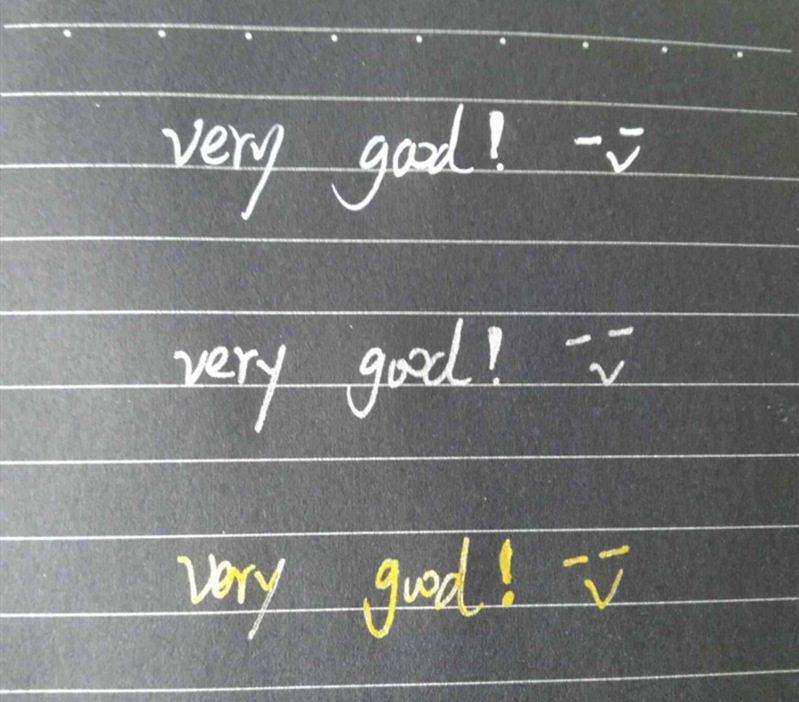 very good!
very good!
very good!